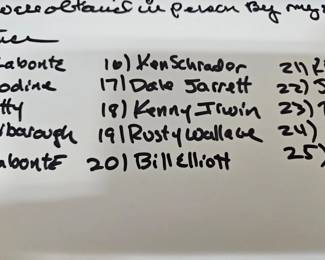 were obtained in person By my
Labonte 16) Ken Schrader 21)
odine 17) Dale Jarrett 22) J
tty 18) Kenny Irwin 23)
rborough 19) Rusty Wallace 24)
abonte 20) Bill Elliott 25)